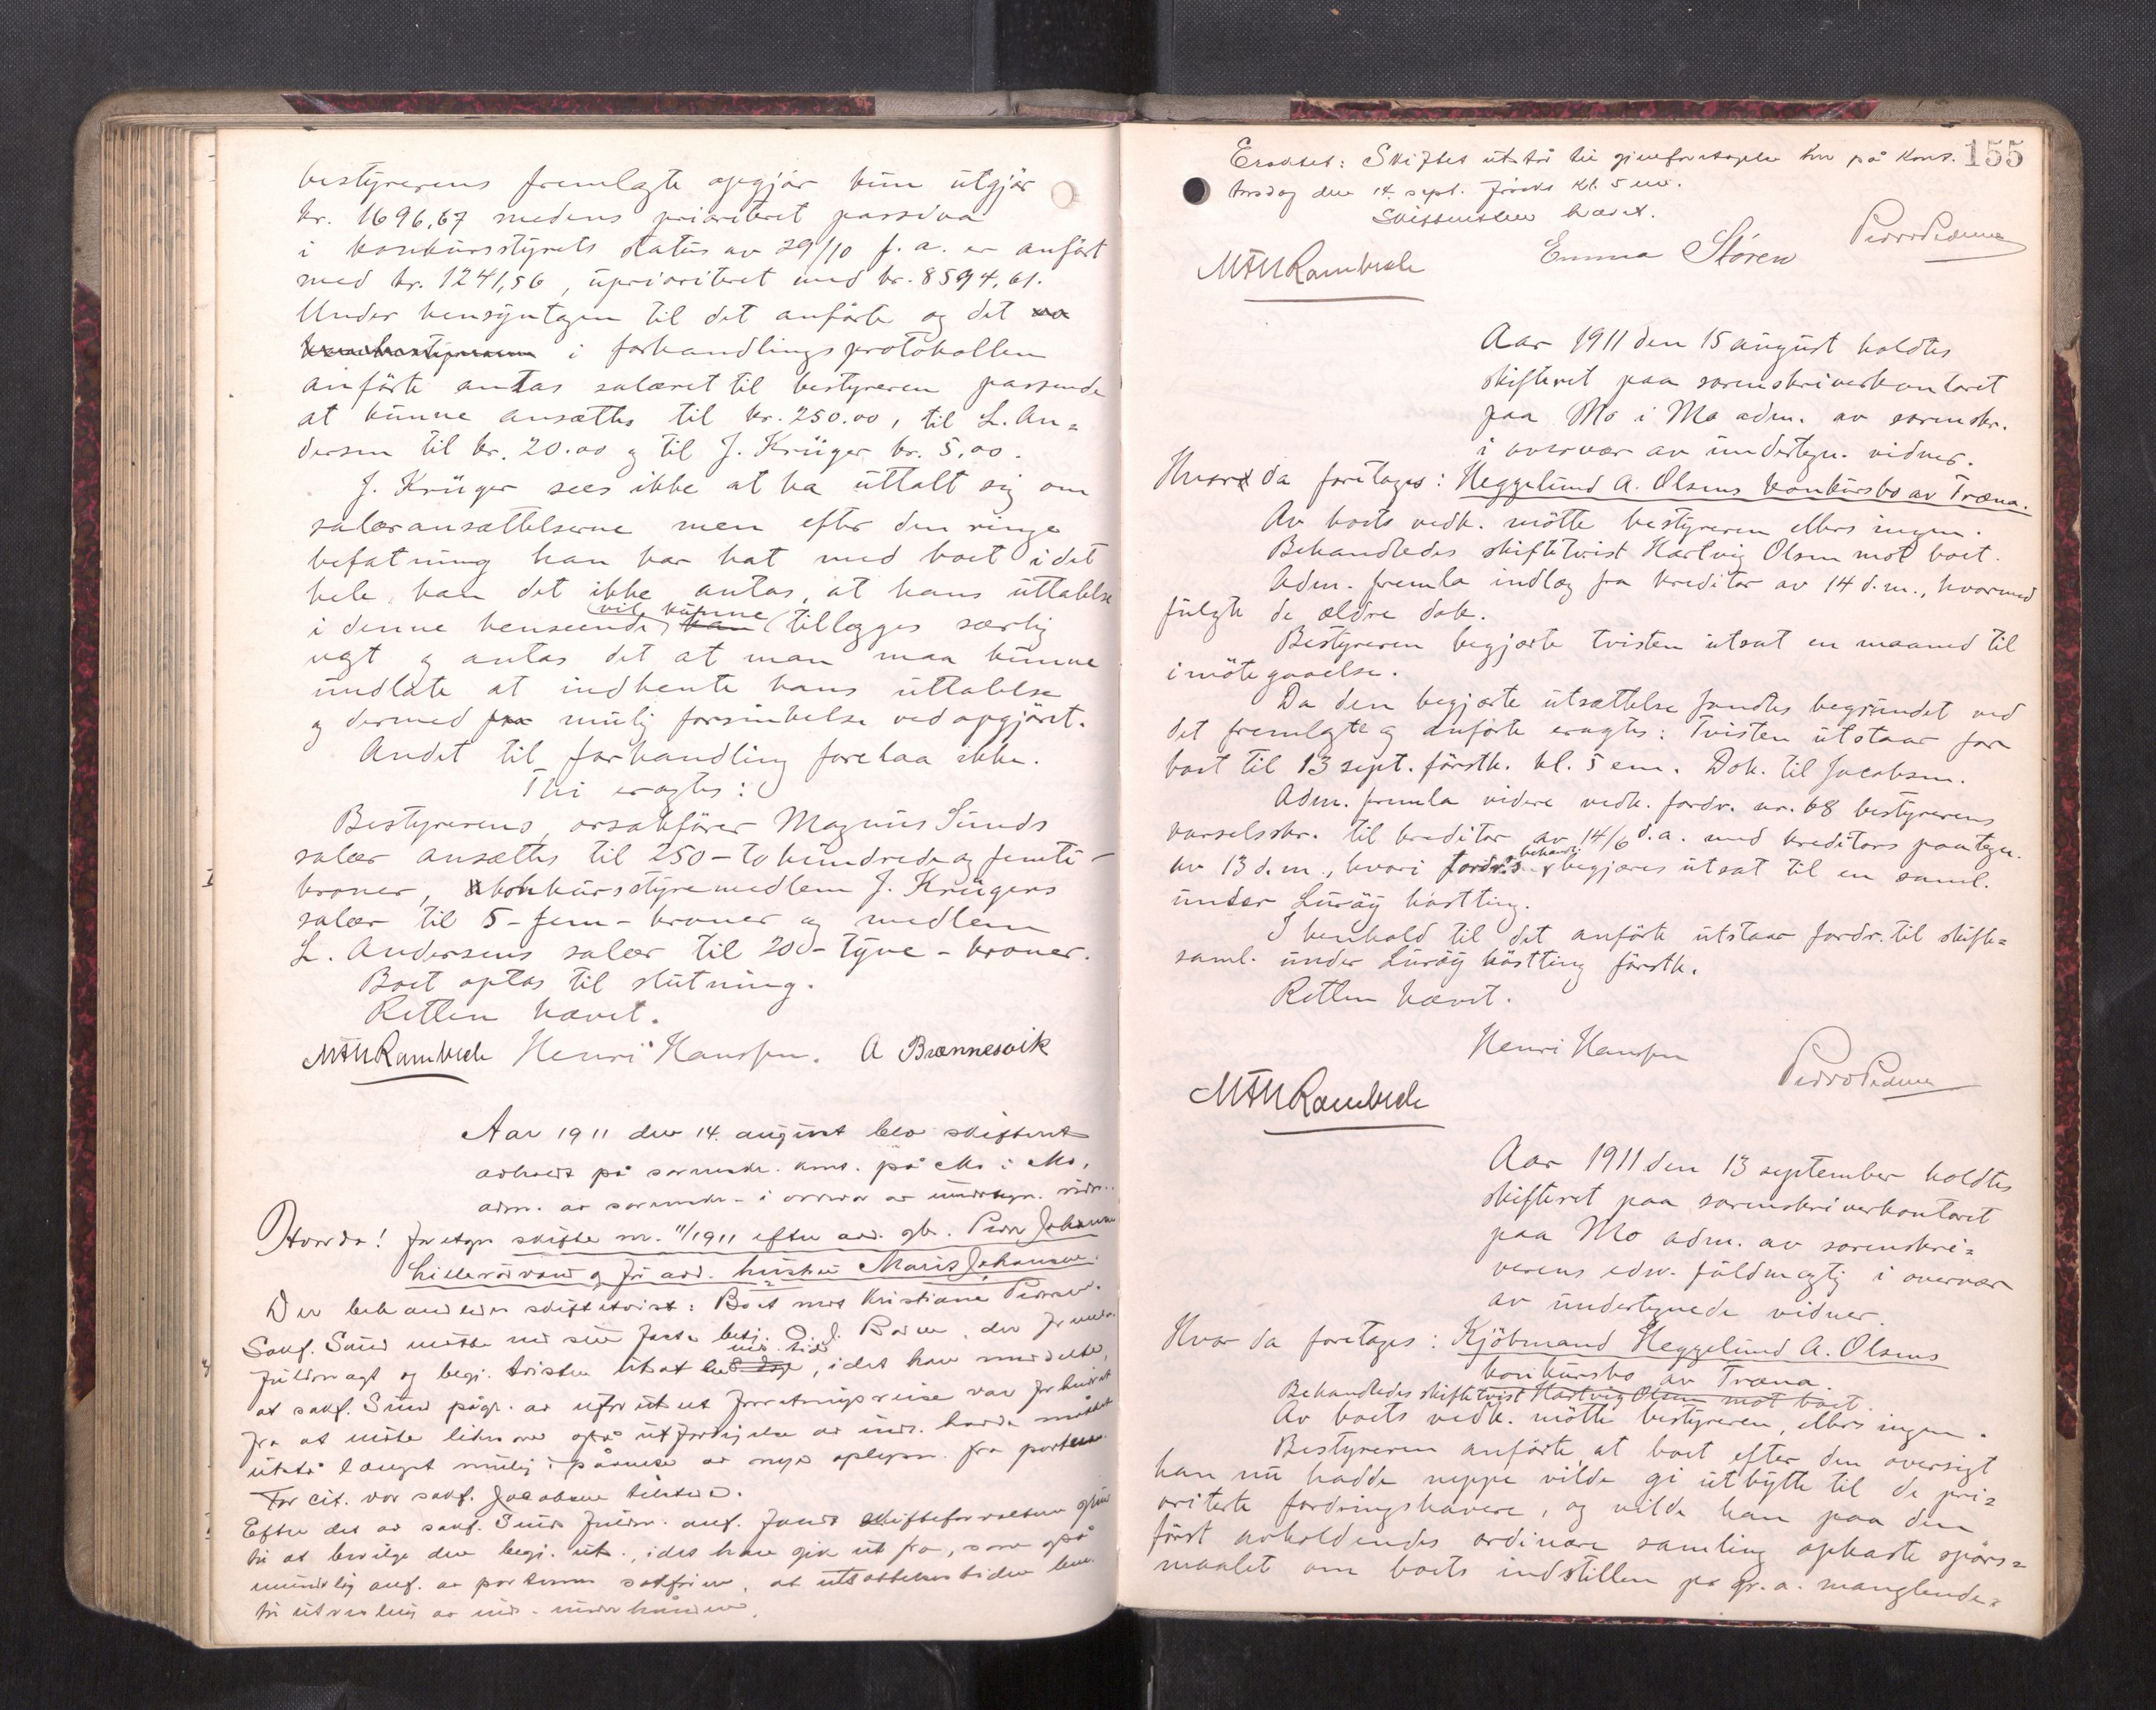 bestyrerens fremlagte opgjør kun utgjør
kr. 1696,67 medens prioritert passiva
i konkursstyrets status av 29/10 f. a. er anført
med kr. 1241,56, uprioritert med kr. 8594,61.
Under hensyntagen til det anførte og det
i forhandlingsprotokollen
anførte antas salæret til bestyreren passende
at kunne ansættes til kr. 250.00, til L. An=
dersen til kr. 20.00 og til J. Krüger kr. 5,00.
J. Krüger sees ikke at ha uttalt sig om
salæransættelserne men efter den ringe
befatning han har hat med boet i det
hele kan det ikke antas, at hans uttalelse
i denne henseende vil kunne tillægges særlig
vegt og antas det at man maa kunne
undlate at indhente hans uttalelse
og dermed mulig forsinkelse ved opgjøret.
Andet til forhandling forelaa ikke.
Thi eragtes:
Bestyrerens, orsakfører Magnus Sunds
salær ansættes til 250 - to hundrede og femti -
kroner, konkursstyremedlem J. Krügers
salær til 5 - fem - kroner og medlem
L. Andersens salær til 20 - tyve - kroner.
Boet optas til slutning.
Retten hævet.
MAURambech Henri Hanssen. A Brennesvik
Aar 1911 den 14. august blev skifteret
avholdt på sorenskr. kont. på Mo i Mo,
adm. av sorenskr. i overvær av undertegn. vidn.
Hvorda! foretages skifte nr. 11/1911 efter avd. gbr. Peder Johansen
og før avd. hustru Maris Johansen.
Der behandledes skiftetvist: Boet mot Kristiane Pedersen.
Sakf. Sund møtte ved sin faste betj.
fuldmagt og begj. tvisten utsat, idet han meddelte,
at sakf. Sund pågr. av uforutset forretningsreise var forhindret
fra at møte
utstå længst mulig i påvente av nye oplysn. fra parten.
For cit. var sakf. Jacobsen tilstede.
Efter det av sakf. Sunds fuldm. anf. fandt skifteforvalteren
til at bevilge den begj. uts., idet han gik ut fra, som også
mundtlig anf. av partens sakfører, at utsættelsestiden
155
Eragtet: Skiftet utstår til gjenforetagelse her på kont.
torsdag den 14. sept. førstk. kl. 5 em.
Skifteretten hævet.
MAURambech Emma Støren Peder Pedersen
Aar 1911 den 15 august holdtes
skifteret paa sorenskriverkontoret
paa Mo i Mo adm. av sorenskr.
i overvær av undertegn. vidner.
Hvor da foretages: Heggelund A. Olsens konkursbo av Træna.
Av boets vedk. møtte bestyreren ellers ingen.
Behandledes skiftetvist Hartvig Olsen mot boet.
Adm. fremla indlæg fra kreditor av 14 d.m., hvormed
fulgte de ældre dok.
Bestyreren begjærte tvisten utsat en maaned til
imøtegaaelse.
Da den begjærte utsættelse fandtes begrundet ved
det fremlagte og anførte eragtes: Tvisten utstaar for
boet til 13 sept. førstk. kl. 5 em. Dok. til Jacobsen.
Adm. fremla videre vedk. fordr. nr. 68 bestyrerens
varselsskr. til kreditor av 14/6 d.a. med kreditors paategn.
av 13 d.m., hvori fordr.s behandl. begjæres utsat til en saml.
under Lurøy høstting.
I henhold til det anførte utstaar fordr. til skifte=
saml. under Lurøy høstting førstk.
Retten hævet.
Henri Hanssen
MAURambech Peder Pedersen
Aar 1911 den 13 september holdtes
skifteret paa sorenskriverkontoret
paa Mo adm. av sorenskri=
verens edsv. fuldmægtig i overvær
av undertegnede vidner.
Hvor da foretages: Kjøbmand Heggelund A. Olsens
konkursbo av Træna.
Behandledes skiftetvist Hartvig Olsen mot boet.
Av boets vedk. møtte bestyreren, ellers ingen.
Bestyreren anførte, at boet efter den oversigt
han nu hadde neppe vilde gi utbytte til de pri=
oriterte fordringshavere, og vilde han paa den
først avholdendes ordinære samling opkaste spørs=
maalet om boets indstillen pa gr. a. manglende=